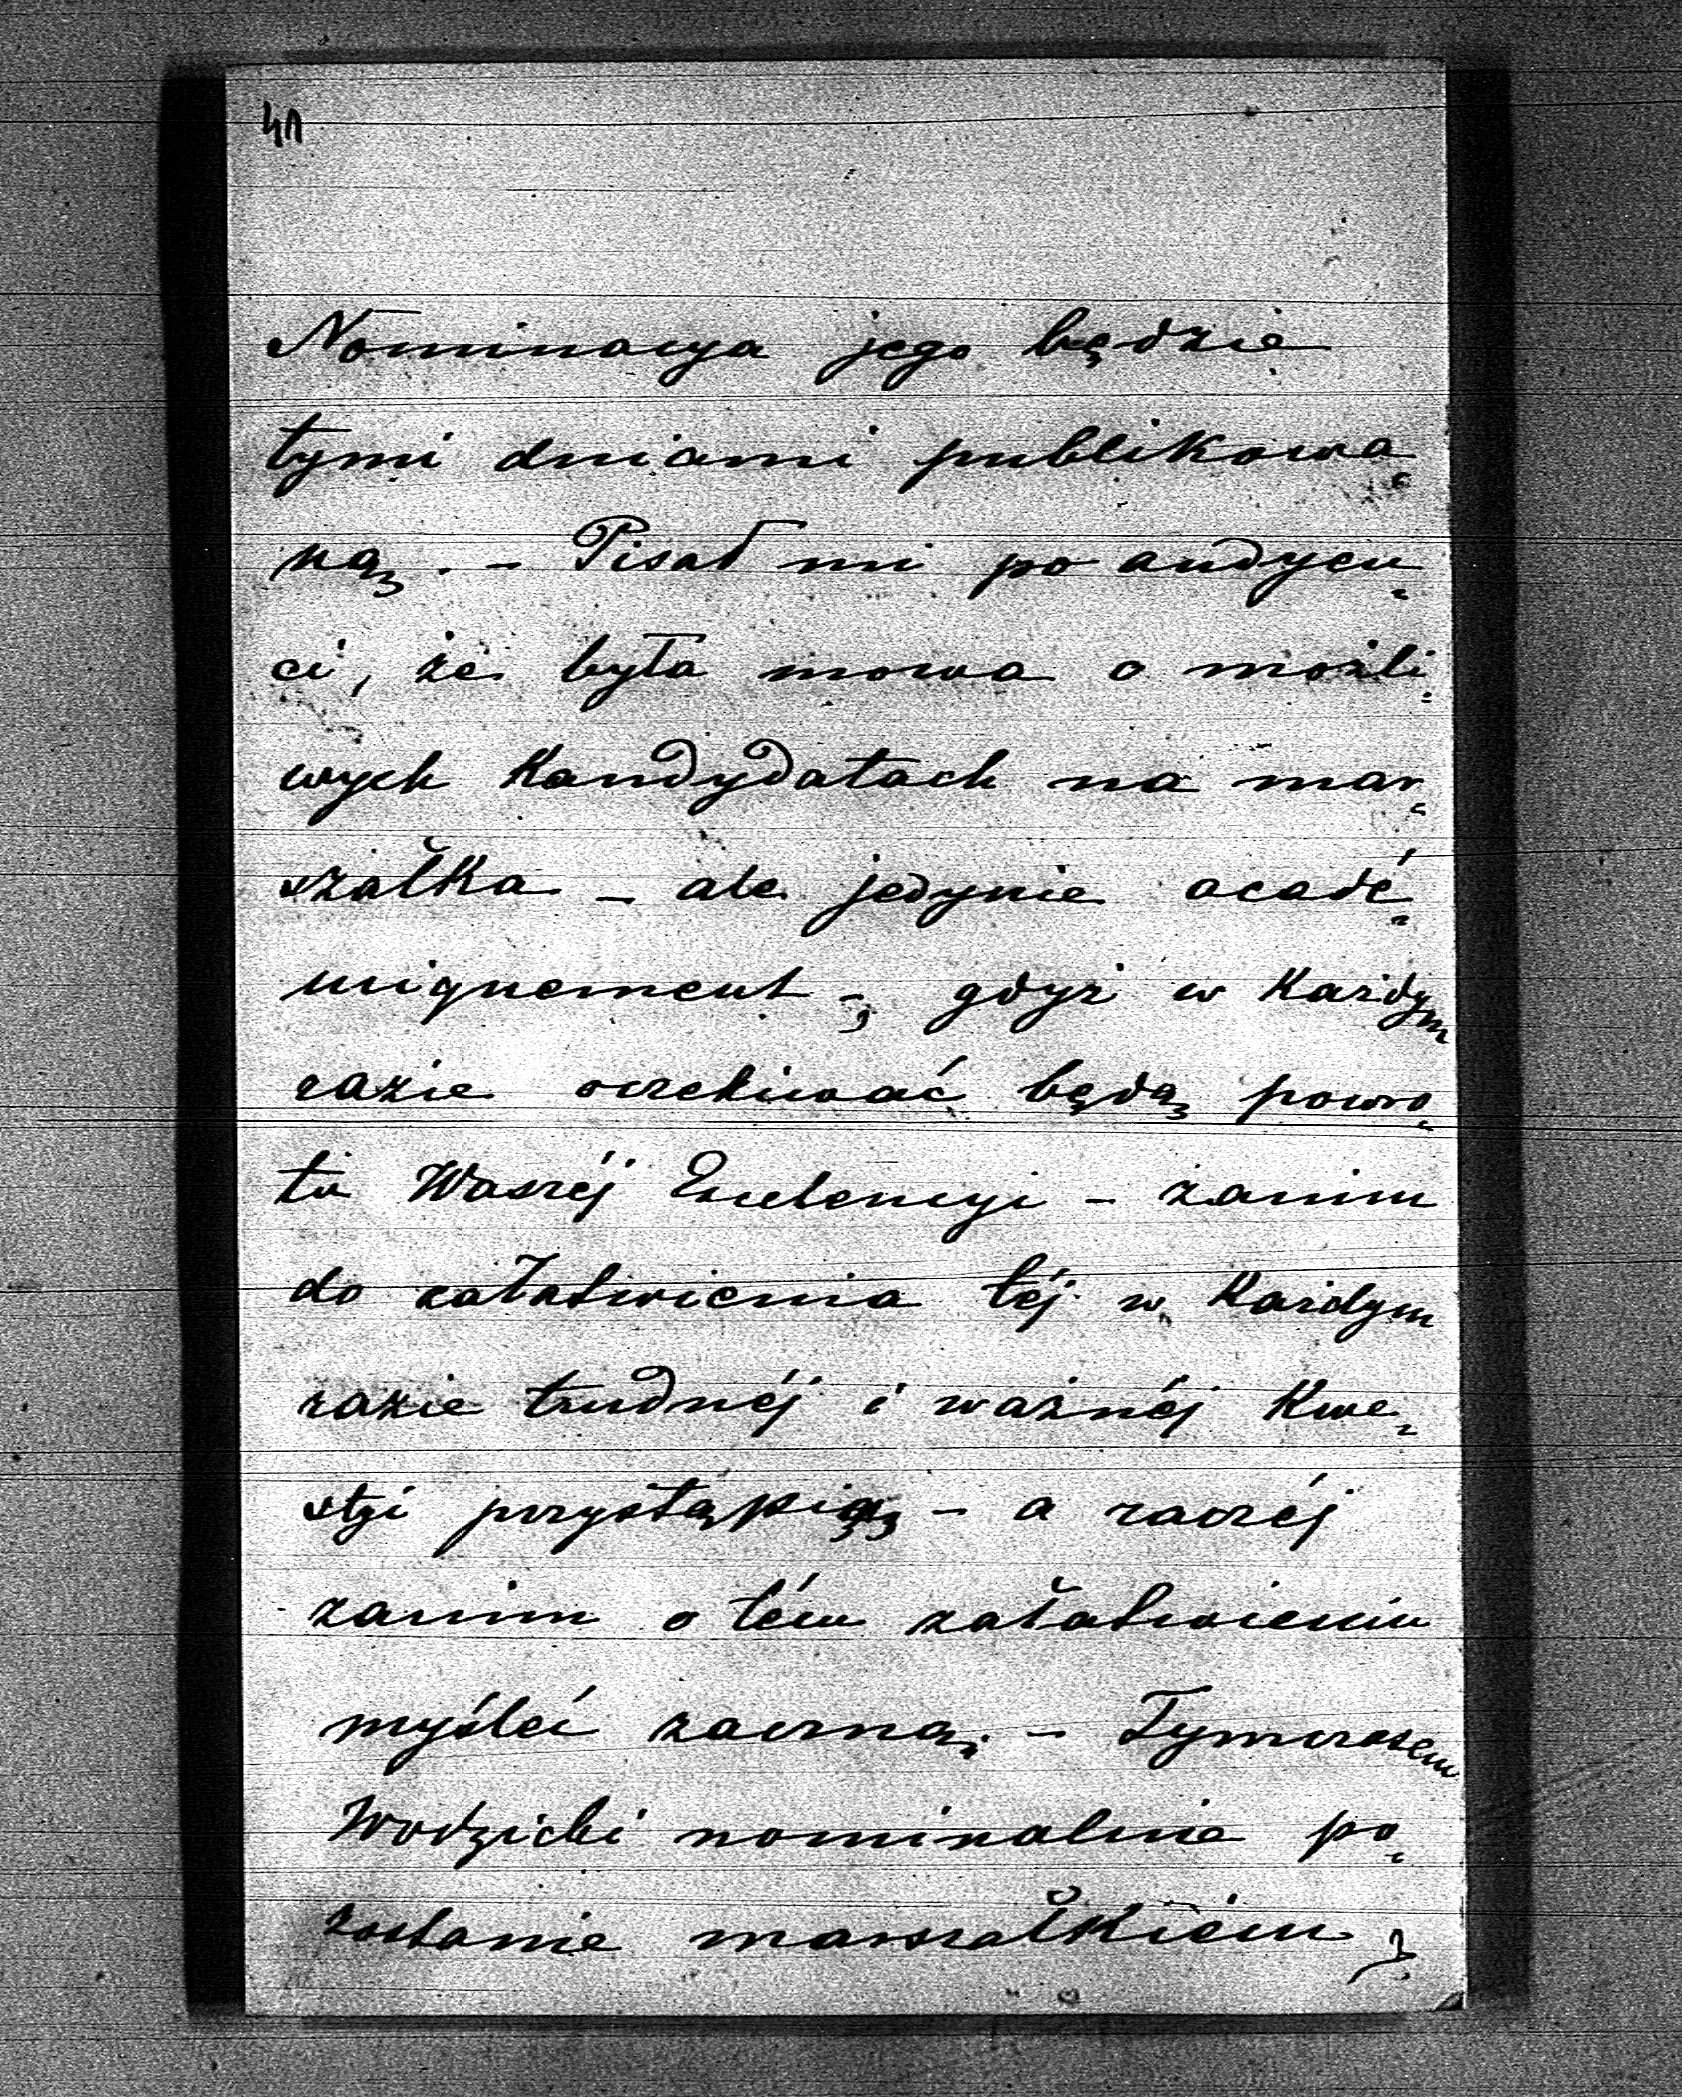 41
Nominacya jego będzie
tymi dniami publikowa-
ną. - Pisał mi po audyen-
ci, że była mowa o możli-
wych Kandydatach na mar-
szałka - ale jedynie acadé-
miquement -, gdyż w Każdym
razie oczekiwać będą powro-
tu Waszéj Excelencyi - zanim
do załatwienia téj w Każdym
razie trudnéj i ważnéj Kwe-
styi przystąpią - a raczéj
zanim o tém załatwieniu
myśleć zaczną. - Tymczasem
Wodzicki nominalnie po-
zostanie marszałkiem,